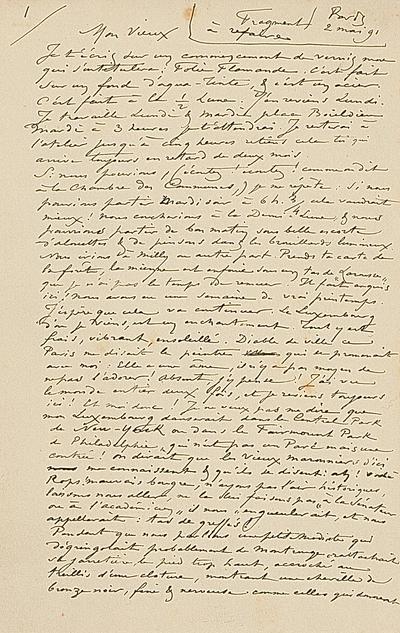 1
Fragment
à refaire
Paris
2 mars 91
Mon Vieux
Je t'écris sur un commencement de vernis mou
qui s'intitulera: Folie Flamande. C'est fait
sur un fond d'aqua-tinte, & c'est un acier
C'est fait à la ½ Lune. J'en reviens Lundi.
Je travaille Lundi & Mardi place Boieldieu
Mardi à 3 heures je t'attendrai. Je resterai à
l'atelier jusqu'à cinq heures retiens cela toi qui
arrive toujours en retard de deux mois
Si nous pouvions, (écoutez! écoutez! comme on dit
à la Chambre des Communes,) je me répète: Si nous
pouvions partir Mardi soir à 6 h. ½ cela vaudrait
mieux! Nous coucherions à la Demi-Lune, & nous
pourrions partir de bon matin sous belle escorte
d'alouettes & de pinsons dans les brouillards lumineux.
Nous irions à Milly ou autre part. Prends ta carte de
la forêt, la mienne est enfouie sous un tas de
que je n'ai pas le temps de remuer. Il fait exquis
ici! Nous avons eu une semaine de vrai printemps.
J'espère que cela va continuer. Le Luxembourg
d'où je viens, est un enchantement. Tout y est
frais, vibrant, ensoleillé. Diable de ville ce
Paris me disait le peintre qui se promenait
avec moi: Elle a une âme, il n'y a pas moyen de
ne pas l'adorer! Absent, j'y pense! J'ai vu
le monde entier deux fois, et je reviens toujours
ici! Et moi donc! Je ne veux pas me dire que
mon Luxembourg danserait dans le Central Park
de New-York ou dans le Fairmount Park
de Philadelphie, qui n'est pas un Parc mais une
contrée! on dirait que les vieux maronniers d'ici
me connaissent & qu'ils se disent: ah! voilà
Rops, mauvais bougre, n'ayons pas l'air historiques,
laissons nous aller, ne la lui faisons pas "à la Sénateur
ou à l'académicien" il nous engueulerait, et nous
appellerait: tas de greffes!
Pendant que nous parlions un petit Modiste qui
dégringolait probablement de Montrouge rattachait
sa jarretière le pied trop haut, accroché au
treillis d'une cloture, montrant une cheville de
bronze noir, fine & nerveuse comme celles qui donnent